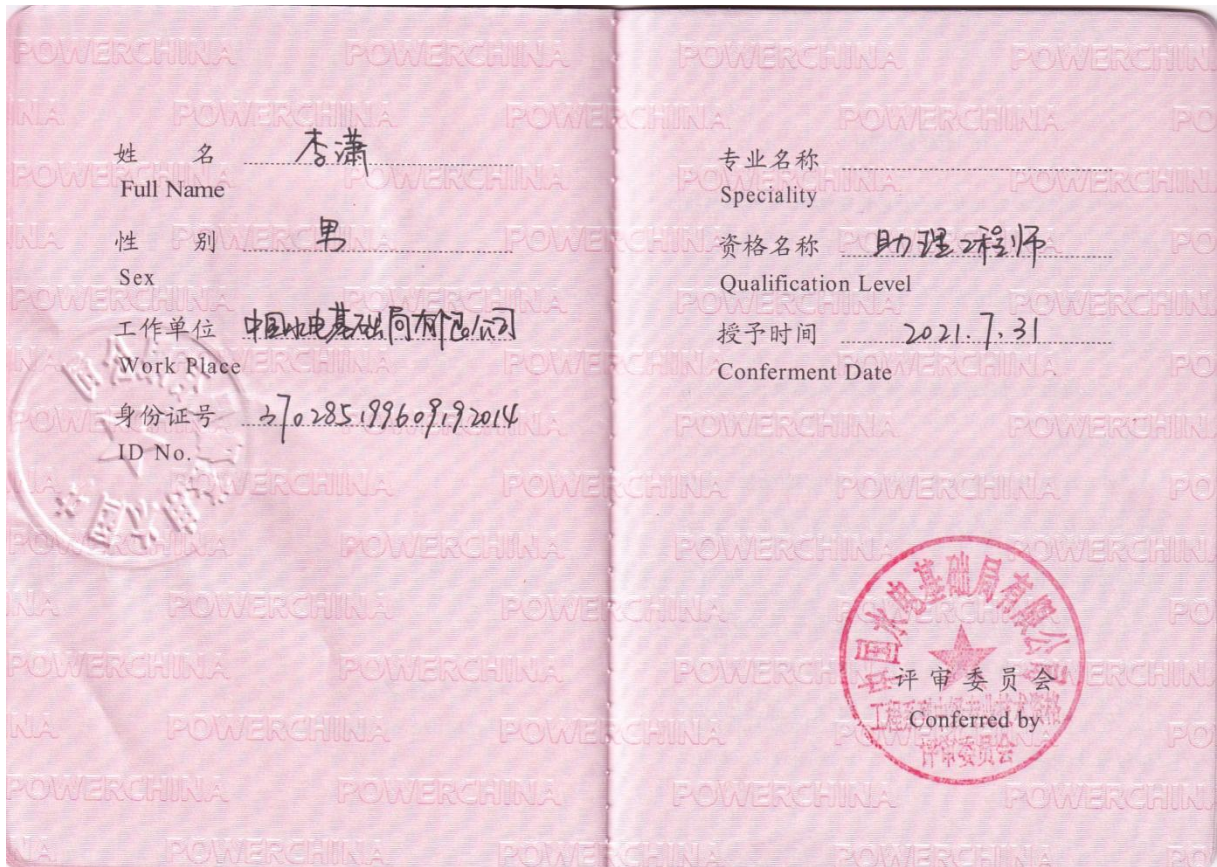 姓 名 李潇
Full Name
性 别 男
Sex
工作单位 中国水电基础局有限公司
Work Place
身份证号 370285199609192014
ID No.
专业名称
Speciality
资格名称 助理工程师
Qualification Level
授予时间 2021.7.31
Conferment Date
中国水电基础局有限公司
评审委员会
Conferred by
评审委员会
POWERCHINA